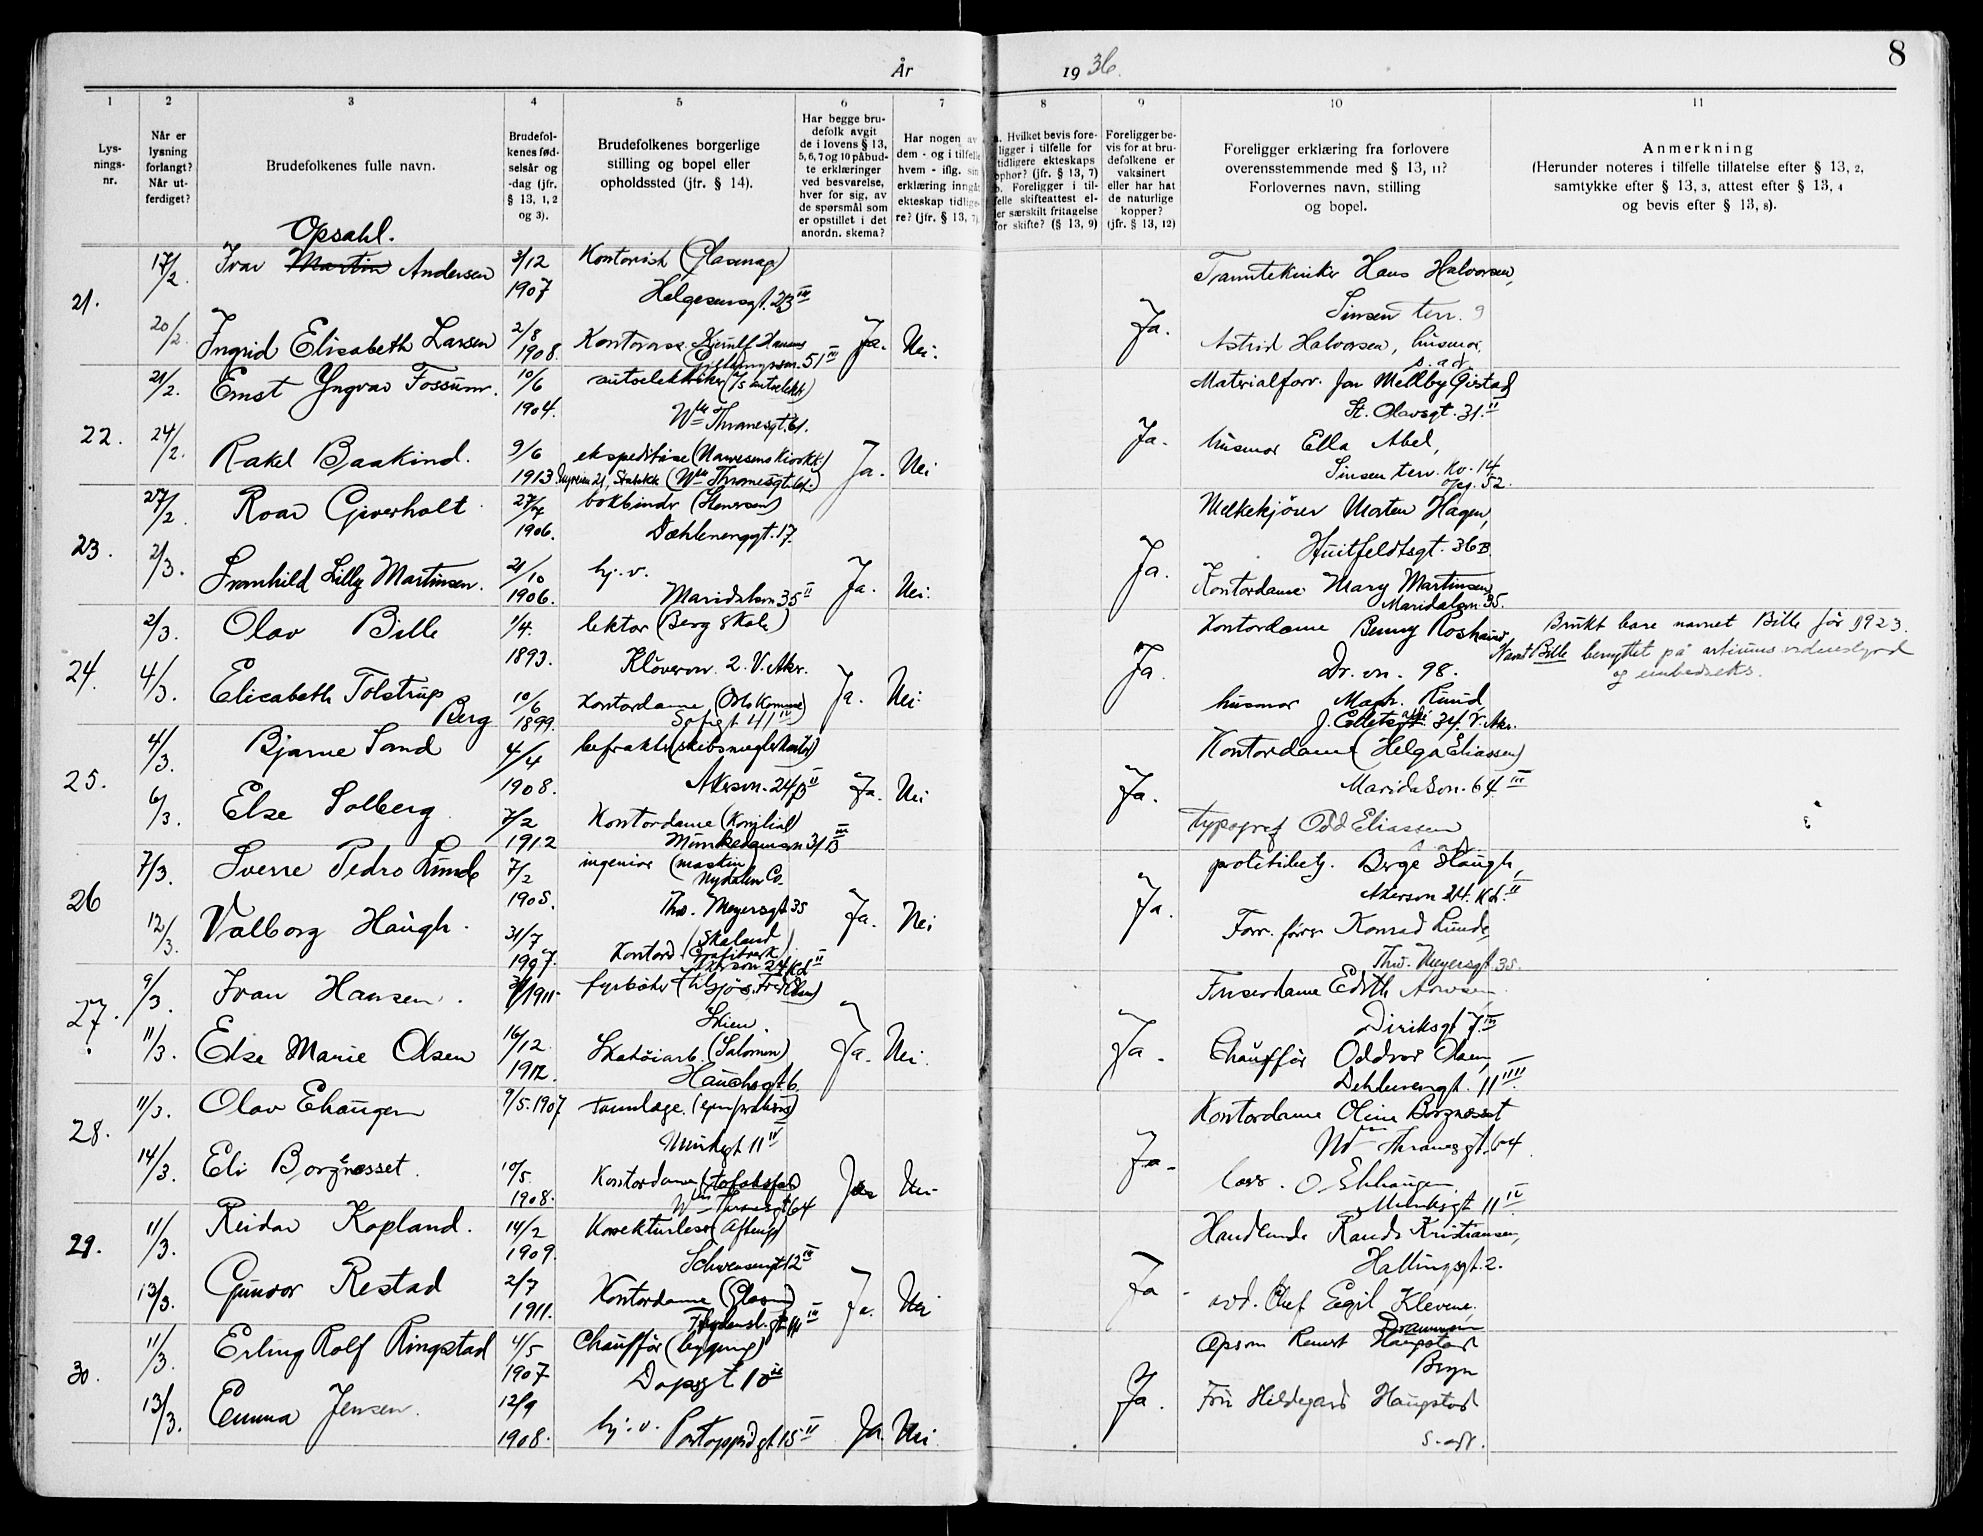 År 1936.
8
1 2 3 4 5 6 7 8 9 10 11
Lys-
nings-
nr.
Når er
lysning
forlangt?
Når ut-
ferdiget?
Brudefolkenes fulle navn.
Brudefol-
kenes fød-
selsår og
-dag (jfr.
§ 13, 1, 2
og 3).
Brudefolkenes borgerlige
stilling og bopel eller
opholdssted (jfr. § 14).
Har begge bru-
defolk avgit
de i lovens § 13,
5, 6, 7 og 10 påbud-
te erklæringer
ved besvarelse,
hver for sig, av
de spørsmål som
er opstillet i det
anordn. skema?
Har nogen av
dem - og i tilfelle
hvem - iflg. sin
erklæring inngått
ekteskap tidlige-
re? (jfr. § 13, 7).
a. Hvilket bevis fore-
ligger i tilfelle for
tidligere ekteskaps
ophør? (jfr. § 13, 7)
b. Foreligger i til-
felle skifteattest el-
ler særskilt fritagelse
for skifte? (§ 13, 9)
Foreligger be-
vis for at bru-
defolkene er
vaksinert
eller har hat
de naturlige
kopper?
(jfr. § 13, 12)
Foreligger erklæring fra forlovere
overensstemmende med § 13, 11?
Forlovernes navn, stilling
og bopel.
Anmerkning
(Herunder noteres i tilfelle tillatelse efter § 13, 2,
samtykke efter § 13, 3, attest efter § 13, 4
og bevis efter § 13, 8).
Opsahl.
21. 17/2. Ivar Martin Andersen 3/12 1907 Kontorist (Glasmag)
Helgesensgt. 23 III
Tanntekniker Hans Halvorsen,
Sinsen terr. 9
20/2. Ingrid Elisabeth Larsen 2/8 1908. Ja. Nei. Ja.
51 III
Astrid Halvorsen, husmor,
s. adr.
22. 21/2. Ernst Yngvar Fossum. 10/6 1904. autoelektriker
Wm Thranesgt. 61.
Materialforv. Jon Mellby Gistad
St. Olavsgt. 31. II
24/2. Rakel Baakind. 9/6 1913 ekspeditrise (Narvesens Kiosk) Ja. Nei Ja.
Stabekk (Wm Thranesgt. 61.)
husmor Ella Abel,
Sinsen terr. Kv. 14
opg. 52.
23. 27/2. Roar Giverholt 27/7 1906. bokbinder (Stenersen)
Dæhlenenggt. 17.
Melkekjører Morten Hagen,
Huitfeldtsgt. 36B.
2/3. Lilly Martinsen. 21/10 1906. hj. v. Ja. Nei. Ja.
Maridalsvn 35 II
Kontordame Mary Martinsen
Maridalsvn 35.
24. 2/3. Olav Bille 1/4. 1893. lektor (Berg skole)
Kløvervn. 2. V. Akr.
Kontordame
Dr. vn. 98.
Brukt bare navnet Bille før 1923.
Navnet Bille benyttet på artiumsvidnesbyrd
og embedseks.
4/3. Elisabeth Tolstrup
Berg 10/6 1899. Kontordame (Oslo Kommune) Ja. Nei. Ja.
Sofiegt. 41 IV
husmor Magh. Ruud,
J. Collets allé 34. V. Akr.
25. 4/3. Bjarne Sand 4/4 1908. befrakter (skibsmeglerkontor)
Akersvn. 24
Kontordame (Helga Eliassen)
Maridalsvn. 64. III
6/3. Else Solberg 7/2 1912 Kontordame Ja. Nei Ja.
Munkedamsvn 31 B III
typograf Odd Eliassen
s. adr
26 7/3. Sverre Pedro Lunde 7/2 1905. ingeniør (maskin)
Nydalen Co.
Thv. Meyersgt 35
politibetj. Berge Haugh,
Akersvn 24. II
12/3. Valborg Haugh. 31/7 1907. Kontord. (Skaland Grafitverk) Ja. Nei Ja.
Akersvn 24 II
Forr. fører Konrad Lunde,
Thv. Meyersgt 35.
27. 9/3. Ivar Hansen. 1911 fyrbøter (Fred Olsen)
Skien.
Friserdame Edith
Diriksgt 7 III
11/3. Else Marie Olsen 16/12. 1912. Skotøiarb. (Salomon) Ja. Nei. Ja.
Hauchsgt 6.
Chauffør Oddvar Olsen,
Dehlenenggt. 11 IIII
28. 11/3. Olav Ehaugen 9/5. 1907 tannlæge. (egen praksis)
Munkgt 11 II
Kontordame Oline Borgnesset
Wm Thranesgt. 64
14/3. Eli Borgnesset. 10/5. 1908. Kontordame Ja Nei. Ja.
Wm Thranesgt 64
O. Ehaugen
Munksgt 11 IV
29. 11/3. Reidar Kopland. 14/2 1909. Korrekturleser (Aftenp)
Schwensensgt 12 IV
Handlende Rands Kristiansen,
Hallingsgt. 2.
13/3. Gunvor Restad 2/7 1911. Kontordame Ja. Nei Ja.
avd. Chef Egil Klevene,
Drammen
30. 11/3. Erling Rolf Ringstad 4/5 1907 Chauffør
Dopsgt 10 III
Haugstad
Bryn
13/3. Emma Jensen. 12/9 1908. hj. v. Ja. Nei Ja.
gt. 15 II
Fru Hildegard Haugstad
s. adr.